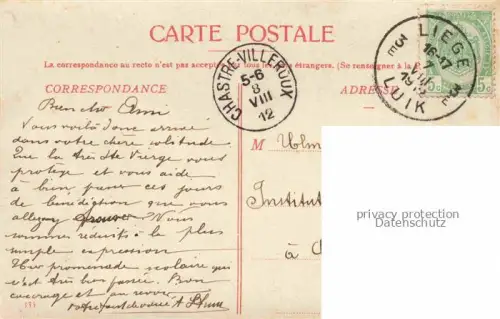 CARTE POSTALE
La correspondance au recto n'est pas acceptée par tous les pays étrangers. (Se renseigner à la P
CORRESPONDANCE
ADRESSE
CHASTRE-VILLEROUX
5-6
8
VIII
12
LIEGE
16-17
7
LUIK
Bien cher Ami
Vous voilà donc arrivé
dans votre chère solitude.
Que la très Ste Vierge vous
protège et vous aide
à bien passer ces jours
de bénédiction que vous
allez y trouver. Nous
sommes réduits à la plus
simple expression
Hier promenade scolaire qui
s'est très bien passée. Bon
courage et au revoir
M
Institut
à
133
privacy protection
Datenschutz